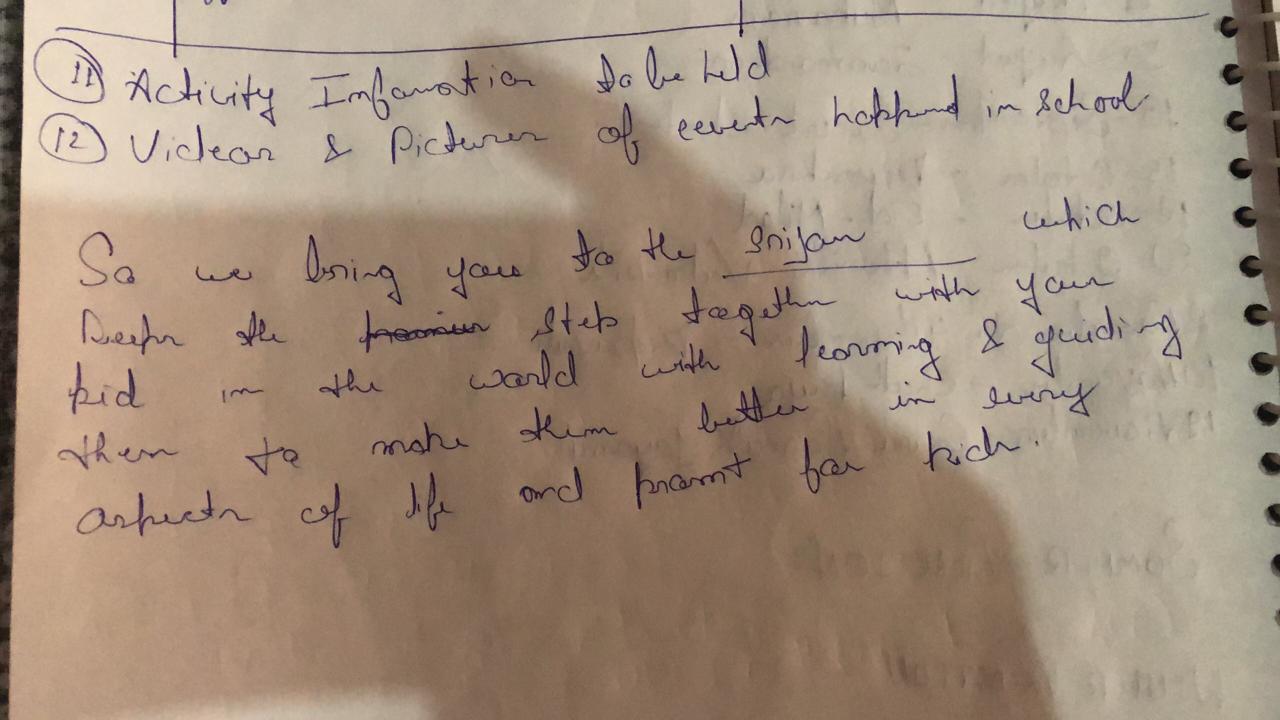 11 Activity Infamation to be held
12 Videos & Pictures of eevents happend in school
So we bring you to the Srijan which
keeps the step together with your
kid in the world with learning & guiding
them to make them better in every
aspects of life and for kids.